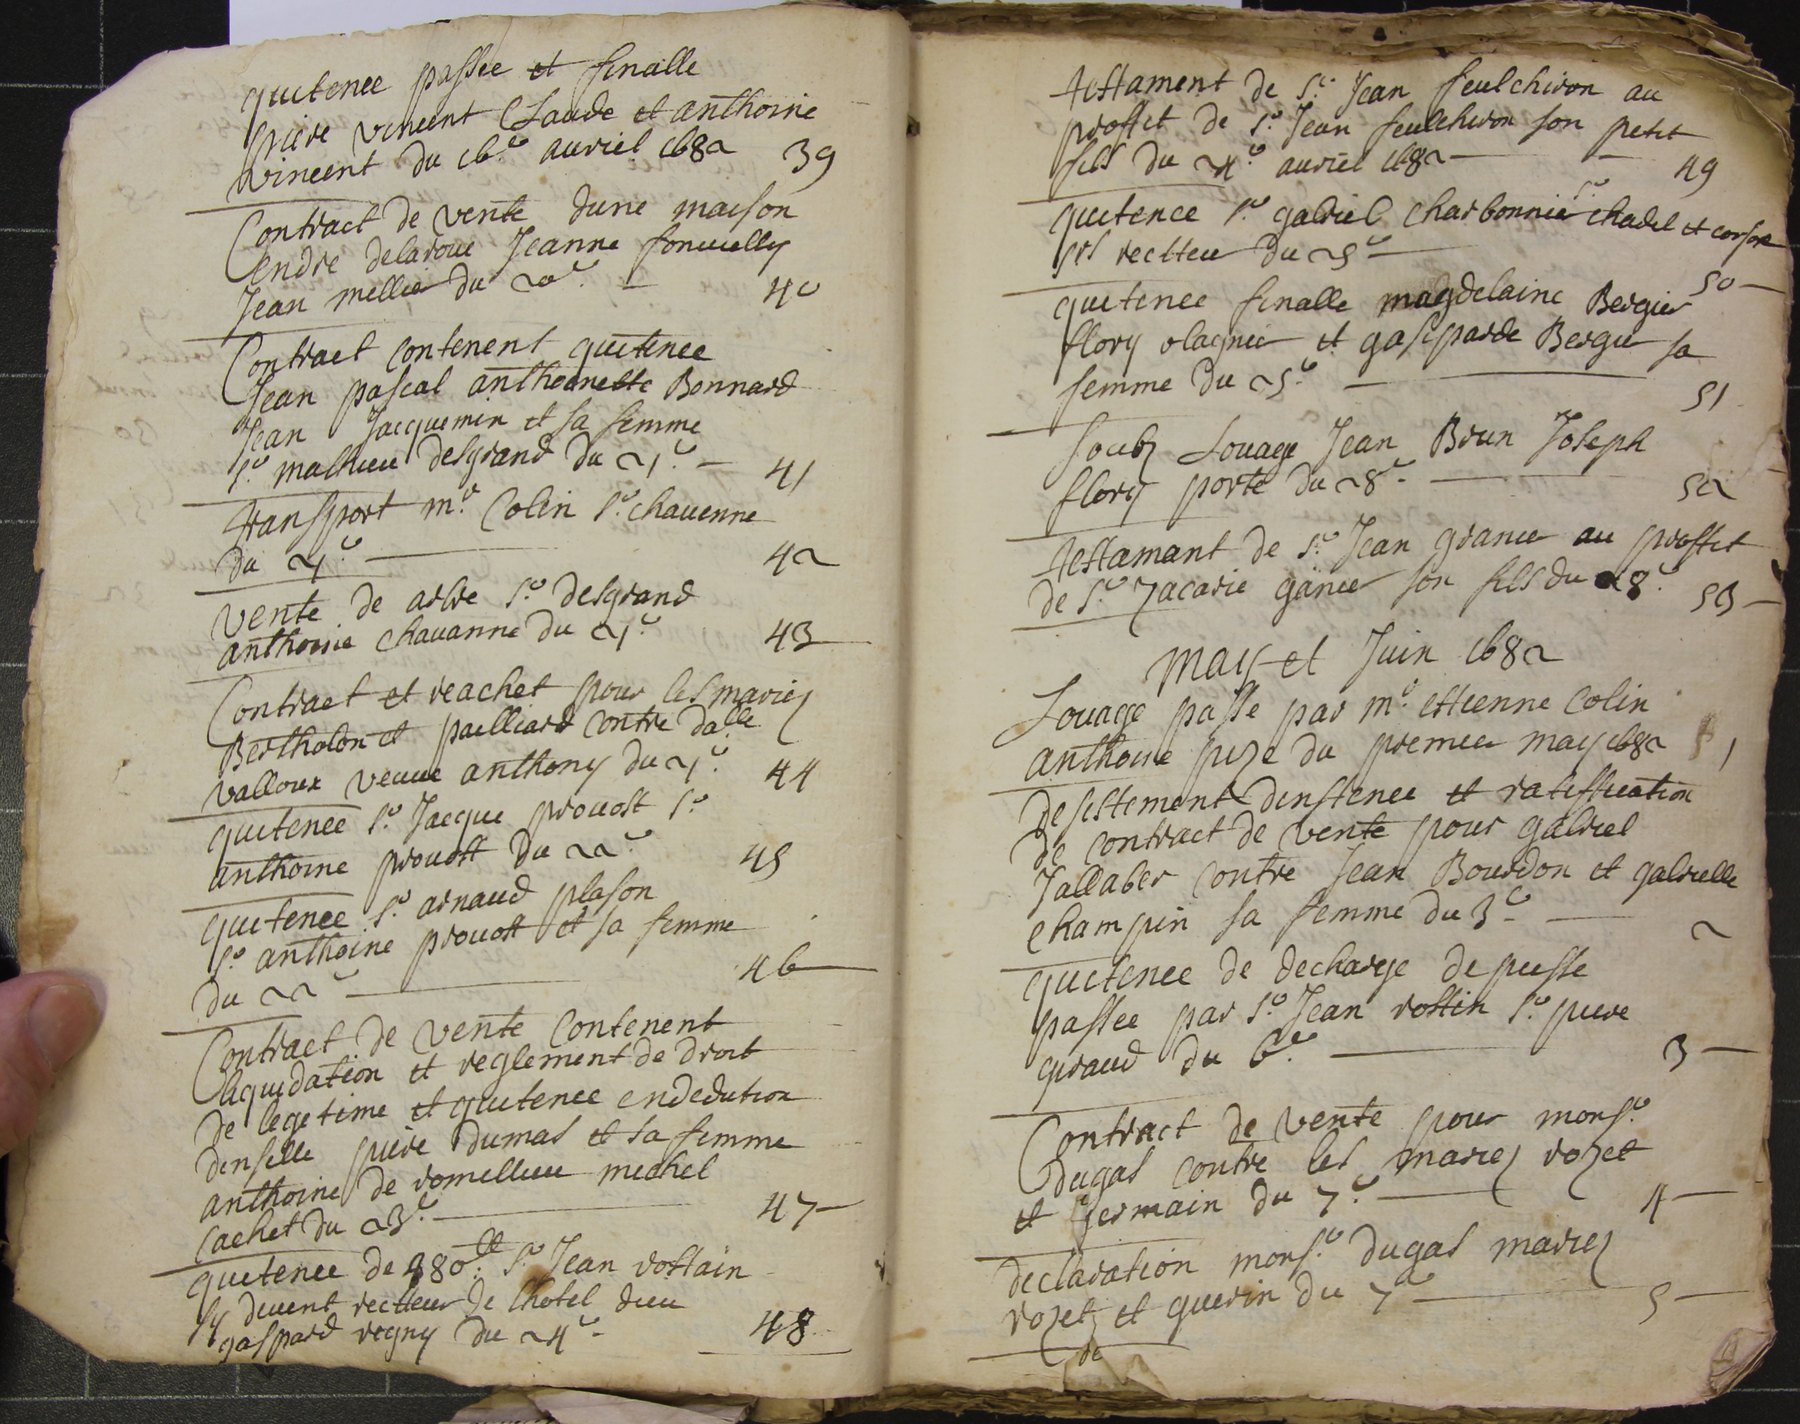 quitence passee et finalle
piere vincent Claude et anthoine
vincent du 16.e auriel 1682 39
Contract de vente dune maison
endre delaroue Jeanne fonuielly
Jean mellier du 20e. 40
Contract contenent quitence
Jean pascal anthoinette Bonnard
Jean Jacquemin et sa femme
sr mathieu desgrand du 21e. 41
transport me. Colin sr. chauenne
du 21e 42
vente de arbre sr desgrand
anthoine chauanne du 21e 43
Contract et reachet pour les mariez
Bertholon et pailliard contre dalle
valloux veuue anthony du 21e. 44
quitence sr Jacque prouost sr
anthoine prouost du 22e. 45
quitence sr. arnaud plason
sr. anthoine prouost et sa femme
du 22e 46
Contract de vente contenent
liquidation et reglement de droit
de legetime et quitence endedution
dinselle piere dumas et sa femme
anthoine de romellieu michel
cachet du 23e. 47
quitence de 380ll. sr Jean rostain
sy deuent recteur de lhotel dieu
gaspard regny du 24e. 48
testament de sr. Jean feulchiron au
proffit de sr. Jean feulchiron son petit
fils du 24e. auriel 1682 49
quitence sr gabriel charbonnier chadel et consor
srs recteur du 25e 50
quitence finalle magdelaine Bergier
flory olagnier et gasparde Bergier sa
femme du 25e. 51
soubz Louage Jean Brun Joseph
flory porte du 28e. 52
testamant de sr. Jean grance au proffit
de sr. zacarie gance son fils du 28e. 53
may et Juin 1682
Louage passe par me. ettienne Colin
anthoine pize du premier may 1682 1
desistement dinstence et ratiffication
de contract de vente pour gabriel
Jallaber contre Jean Bourdon et gabrielle
champin sa femme du 3e 2
quitence de decharge de piesse
passee par sr. Jean rostin sr. piere
giraud du 6e. 3
Contract de vente pour monsr.
dugas contre les mariez rozet
et germain du 7e. 4
declaration monsr. dugas mariez
rozet et guerin du 7e 5
de